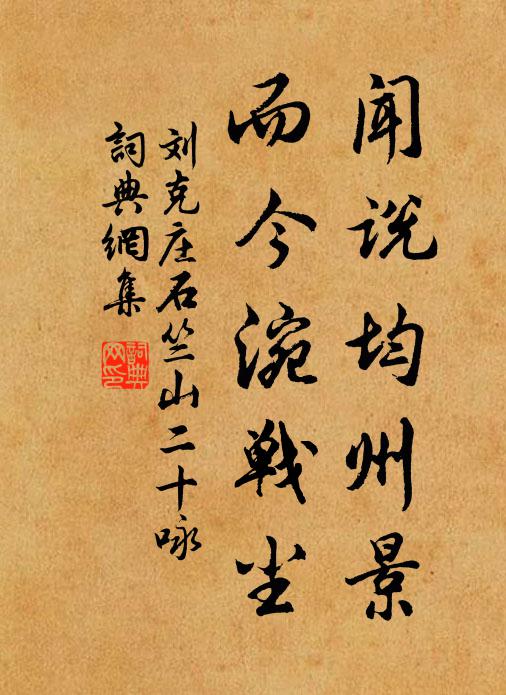 闻说均州景
而今涴战尘
刘克庄石竺山二十咏
詞典網集
詞典网印